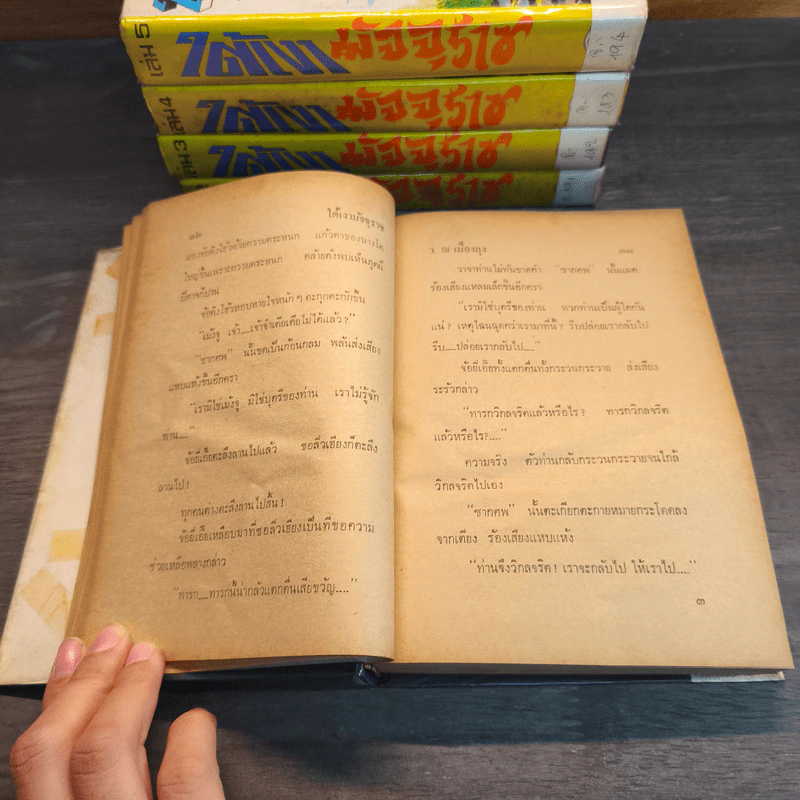 เล่ม 5
ใต้เงา
มัจจุราช
194
เล่ม 4
ใต้เงา
มัจจุราช
193
เล่ม 3
ใต้เงา
มัจจุราช
192
ใต้เงามัจจุราช
มองจ้อตั้งโฮ้วด้วยความตระหนก แก้วตาของนางโต
ใหญ่ขึ้นเพราะความตระหนก คล้ายดั่งพบเห็นภูตผี
ปีศาจก็ปาน
จ้อตั้งโฮ้วหอบหายใจหนัก ๆ ตะกุกตะกักขึ้น
"เม้งจู เจ้า.....เจ้าจำเตียเตียไม่ได้แล้ว ?"
"ซากศพ" นั้นขดเป็นก้อนกลม พลันส่งเสียง
แหบแห้งขึ้นอีกครา
"เรามิใช่เม้งจู มิใช่บุตรีของท่าน เราไม่รู้จัก
ท่าน....."
จ้อยี่เอี๊ยตะลึงลานไปแล้ว ซอลิ่วเอียงก็ตะลึง
ลานไป !
ทุกคนต่างตะลึงลานไปสิ้น !
จ้อยี่เอี๊ยเหลือบมาที่ซอลิ่วเอียงเป็นที่ขอความ
ช่วยเหลือพลางกล่าว
"ทารก.....ทารกนี้น่ากลัวแตกตื่นเสียขวัญ....."
ว. ณ เมืองลุง
๓๓
วาจาท่านไม่ทันขาดคำ "ซากศพ" นั้นแผด
ร้องเสียงแหลมเล็กขึ้นอีกครา
"เรามิใช่บุตรีของท่าน พวกท่านเป็นผู้ใดกัน
แน่ ? เหตุใฉนฉุดคร่าเรามาที่นี้ ? รีบปล่อยเรากลับไป
รีบ.....ปล่อยเรากลับไป....."
จ้อยี่เอี๊ยทั้งแตกตื่นทั้งกระวนกระวาย ส่งเสียง
ระรัวกล่าว
"ทารกวิกลจริตแล้วหรือไร ? ทารกวิกลจริต
แล้วหรือไร?....."
ความจริง ตัวท่านกลับกระวนกระวายจนใกล้
วิกลจริตไปเอง
"ซากศพ" นั้นตะเกียกตะกายหมายกระโดดลง
จากเตียง ร้องเสียงแหบแห้ง
"ท่านจึงวิกลจริต ! เราจะกลับไป ให้เราไป....."
๓